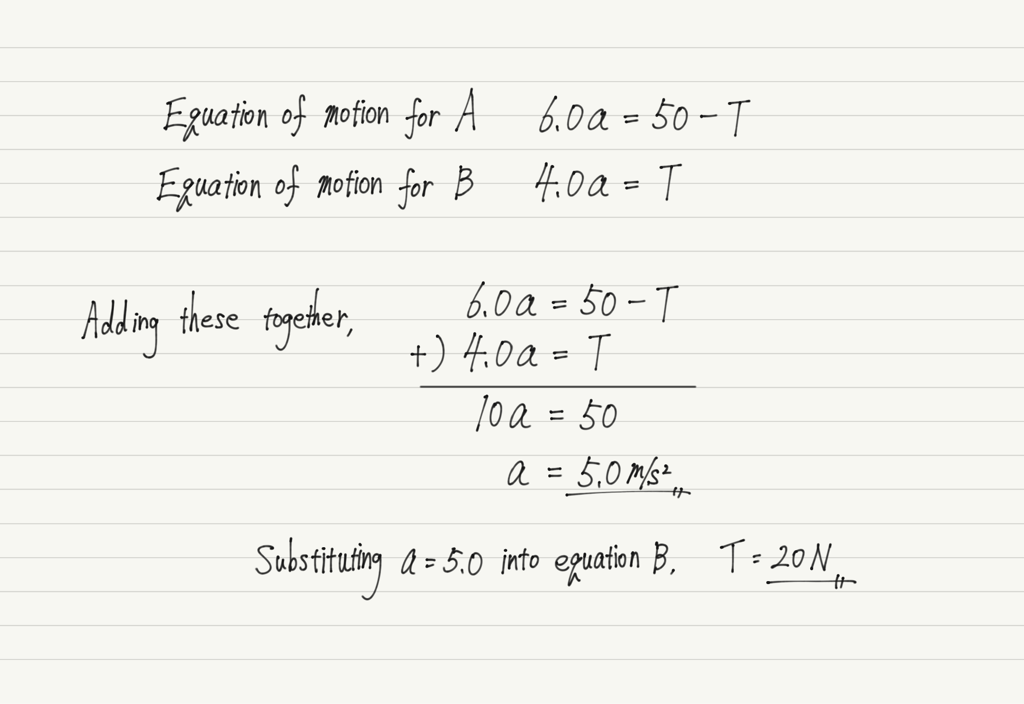 Equation of motion for A 6.0a = 50 - T
Equation of motion for B 4.0a = T
Adding these together, 6.0a = 50 - T
+) 4.0a = T
10a = 50
a = 5.0 m/s²
Substituting a = 5.0 into equation B, T = 20N